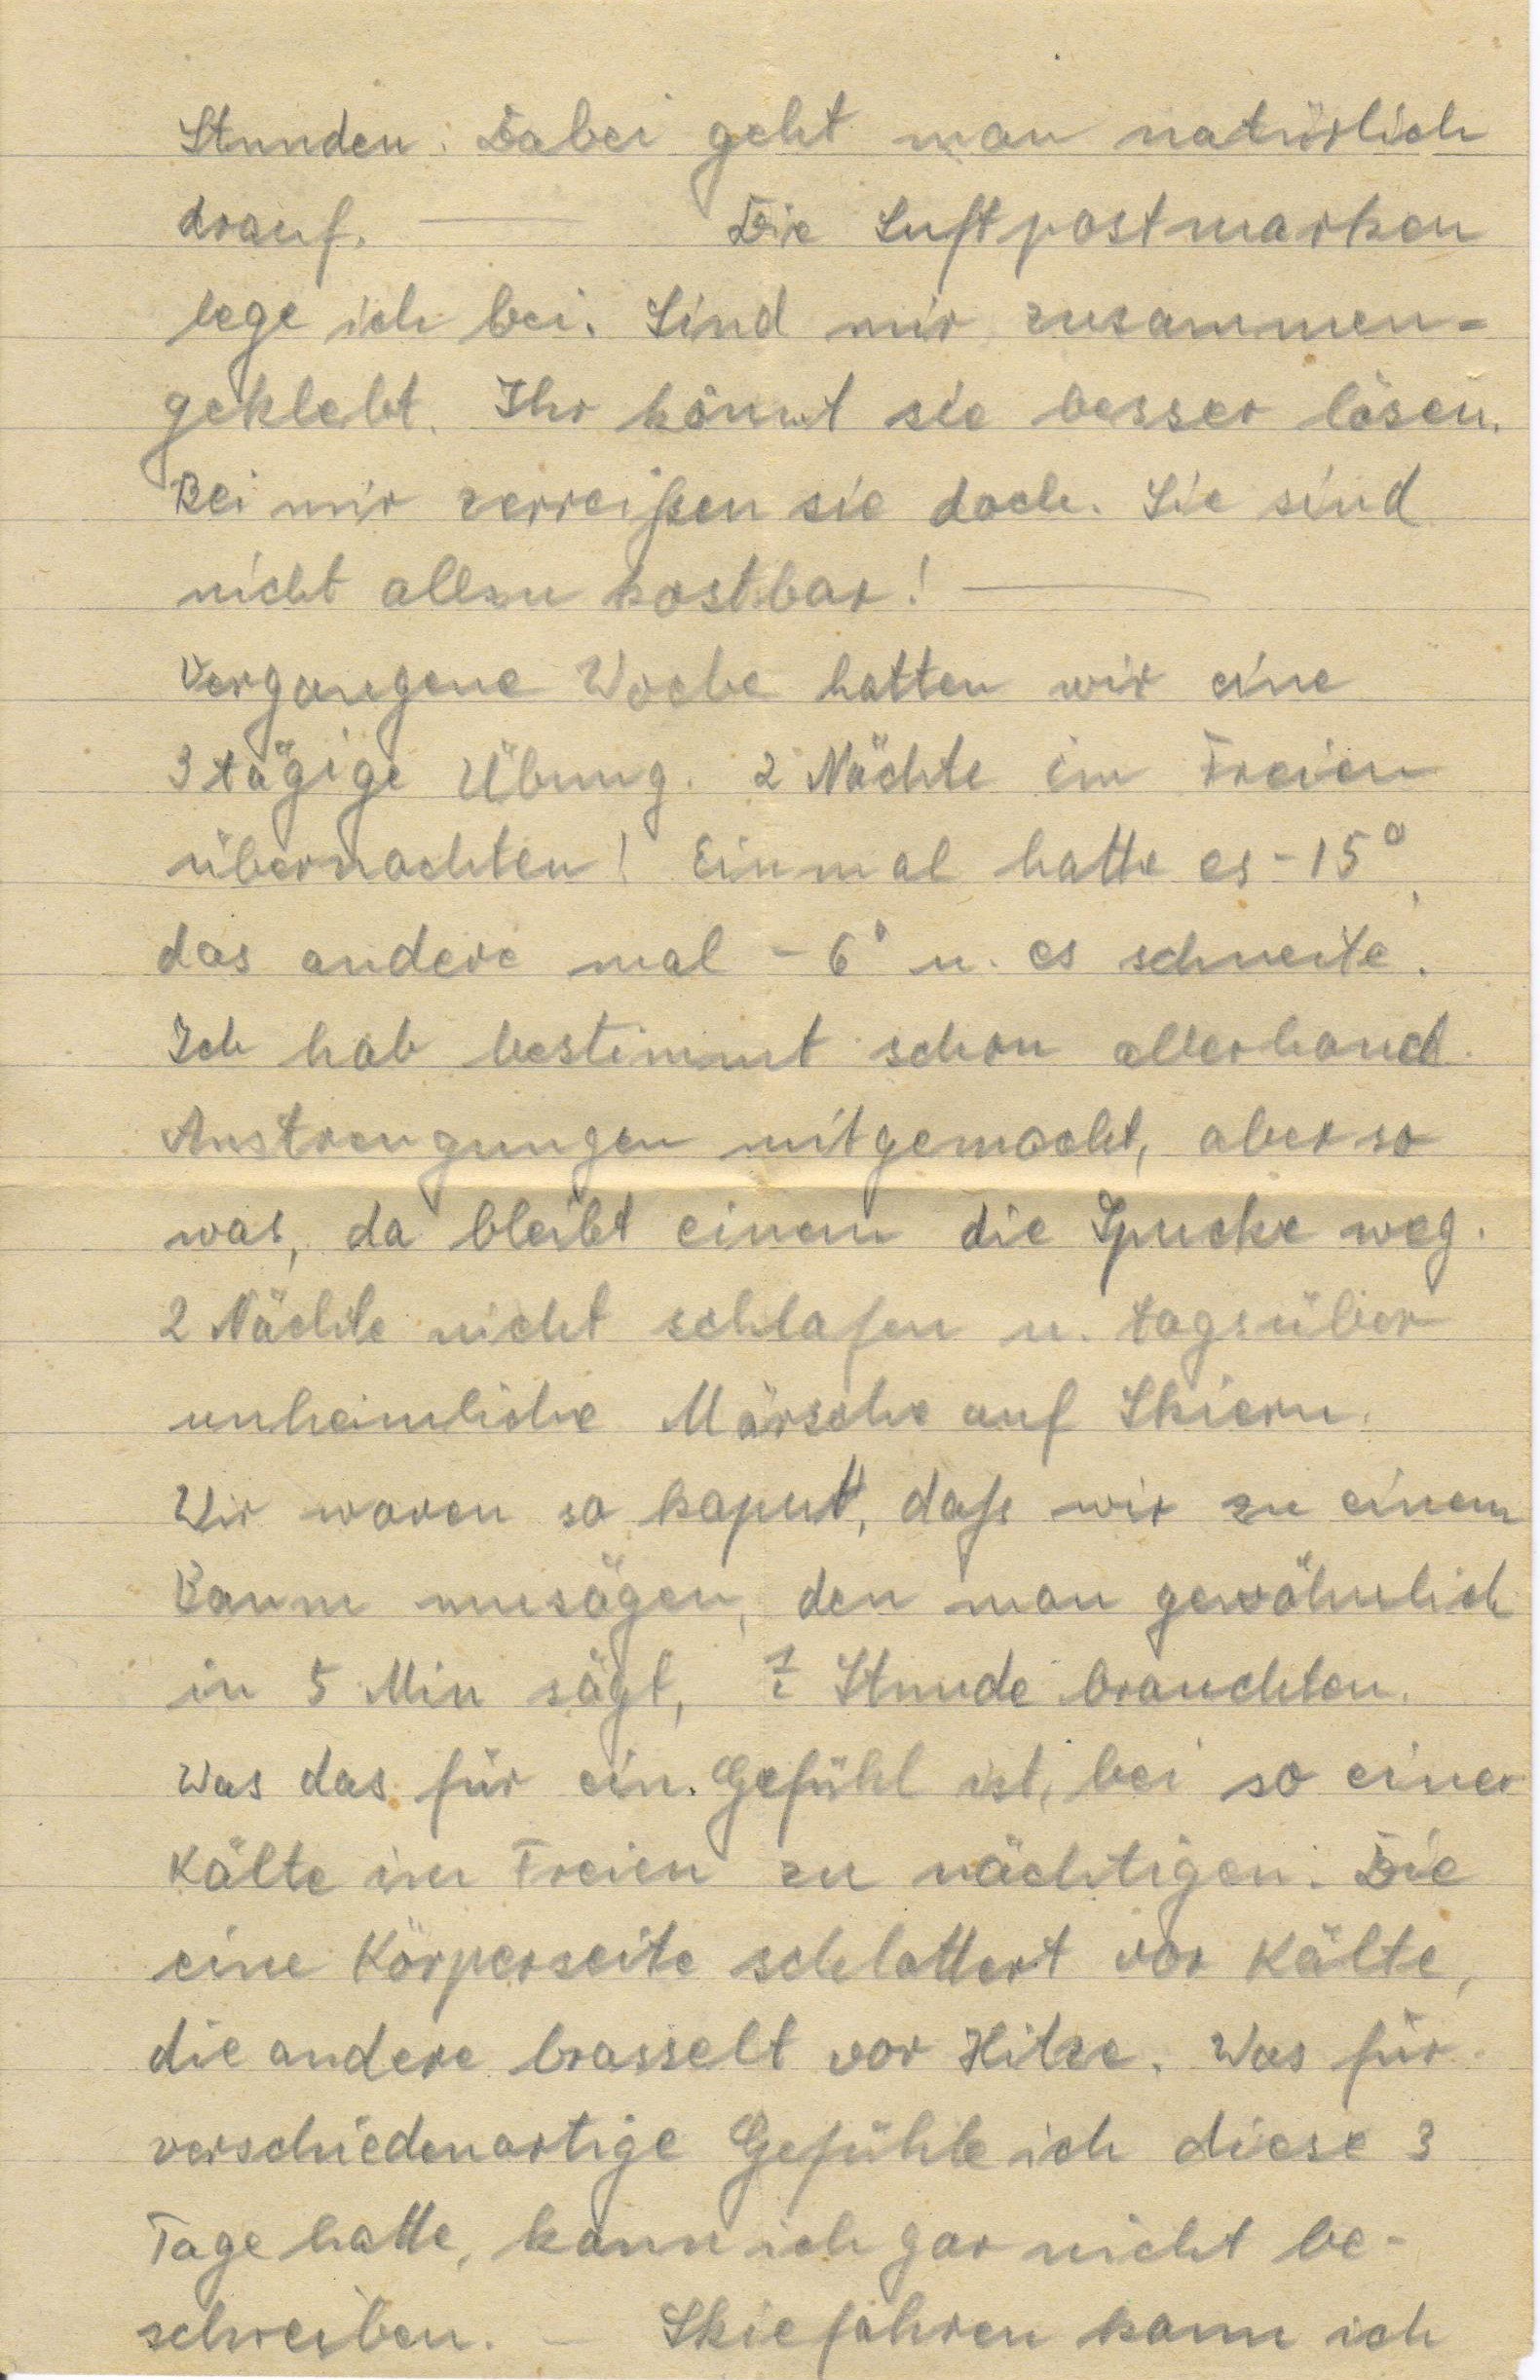 Stunden. Dabei geht man natürlich
drauf. — Die Luftpostmarken
lege ich bei. Sind mir zusammen-
geklebt. Ihr könnt sie besser lösen.
Bei mir zerreißen sie doch. Sie sind
nicht allzu kostbar! —
Vergangene Woche hatten wir eine
3 tägige Übung. 2 Nächte im Freien
übernachten! Einmal hatte es -15°,
das andere mal -6° u. es schneite.
Ich hab bestimmt schon allerhand
Anstrengungen mitgemacht, aber so
was, da bleibt einem die Spucke weg.
2 Nächte nicht schlafen u. tagsüber
unheimliche Märsche auf Skiern.
Wir waren so kaputt, dass wir zu einem
Baum umsägen, den man gewöhnlich
in 5 Min sägt, Stunde brauchten.
Was das für ein Gefühl ist, bei so einer
Kälte im Freien zu nächtigen. Die
eine Körperseite schlottert vor Kälte,
die andere brasselt vor Hitze. Was für
verschiedenartige Gefühle ich diese 3
Tage hatte, kann ich gar nicht be-
schreiben. — Skiefahren kann ich